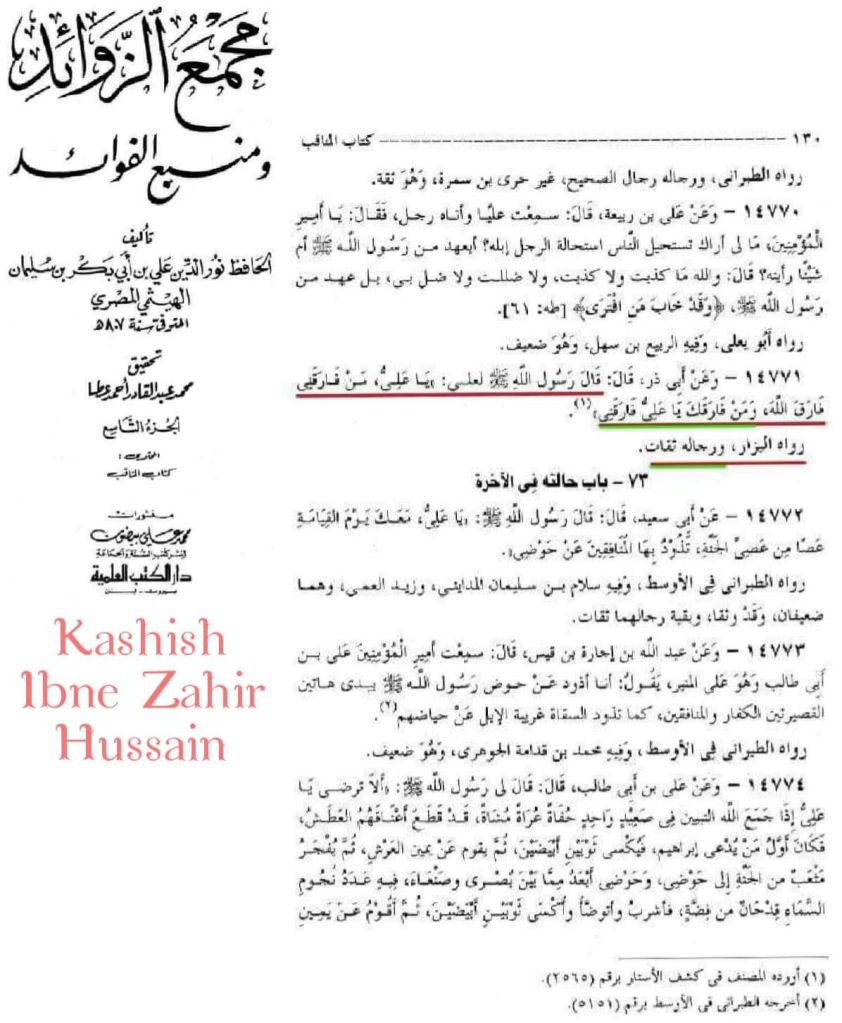 مجمع الزوائد
ومنبع الفوائد
تأليف
الحافظ نور الدين علي بن أبي بكر بن سليمان
الهيثمي المصري
المتوفى سنة ٨٠٧هـ
تحقيق
محمد عبد القادر أحمد عطا
الجزء التاسع
المحتوى:
كتاب المناقب
منشورات
محمد علي بيضون
لنشر كتب السنة والجماعة
دار الكتب العلمية
بيروت - لبنان
Kashish
Ibne Zahir
Hussain
١٣٠ ــــــــ كتاب المناقب
رواه الطبرانى، ورجاله رجال الصحيح، غير حرى بن سمرة، وَهُوَ ثقة.
١٤٧٧٠ – وَعَنْ على بن ربيعة، قَالَ: سمعت عليًا وأتاه رجل، فَقَالَ: يَا أَمِيرِ
الْمُؤْمِنِينَ، مَا لى أراك تستحيل الناس استحالة الرجل إبله؟ أبعهد من رَسُول اللَّه ﷺ أم
شيئًا رأيته؟ قَالَ: والله مَا كذبت ولا كذبت، ولا ضللت ولا ضل بى، بل عهد من
رَسُول اللَّه ﷺ، ﴿وَقَدْ خَابَ مَنِ افْتَرَى﴾ [طه: ٦١].
رواه أَبُو يعلى، وَفِيهِ الربيع بن سهل، وَهُوَ ضعيف.
١٤٧٧١ – وَعَنْ أَبى ذر، قَالَ: قَالَ رَسُول اللَّهِ ﷺ لعلى: «يَا عَلِىُّ، مَنْ فَارَقَنِى
فَارَقَ اللَّهَ، وَمَنْ فَارَقَكَ يَا عَلِىُّ فَارَقَنِى»(١).
رواه البزار، ورجاله ثقات.
٧٣ – باب حالته فِى الآخرة
١٤٧٧٢ – عَنْ أَبى سعيد، قَالَ: قَالَ رَسُول اللَّه ﷺ: «يَا عَلِىُّ، مَعَكَ يَوْمَ الْقِيَامَةِ
عَصًا مِن عَصِىِّ الْجَنَّةِ، تَذُودُ بِهَا الْمُنَافِقِينَ عَنْ حَوْضِى».
رواه الطبرانى فِى الأوسط، وَفِيهِ سلام بن سليمان المداينى، وزيد العمى، وهما
ضعيفان، وَقَدْ وثقا، وبقية رجالهما ثقات.
١٤٧٧٣ – وَعَنْ عبد الله بن إجارة بن قيس، قَالَ: سمعت أَمِيرَ الْمُؤْمِنِينَ عَلى بن
أَبى طالب وَهُوَ عَلى المنبر، يَقُولُ: أنا أذود عَنْ حوض رَسُول اللَّه ﷺ بيدى هاتين
القصيرتين الكفار والمنافقين، كما تذود السقاة غريبة الإبل عَنْ حياضهم(٢).
رواه الطبرانى فِى الأوسط، وَفِيهِ محمد بن قدامة الجوهرى، وَهُوَ ضعيف.
١٤٧٧٤ – وَعَنْ على بن أَبى طالب، قَالَ: قَالَ لى رَسُول اللَّه ﷺ: «أَلاَ ترضى يَا
عَلِىُّ إِذَا جَمَعَ اللَّه النبيين فِى صَعِيْدٍ وَاحِدٍ حُفَاةً عُرَاةً مُشَاةً، قَدْ قَطَعَ أَعْنَاقَهُمُ الْعَطَشُ،
فَكَانَ أَوَّلُ مَنْ يُدْعَى إبراهيم، فَيُكْسى ثَوْبَيْنِ أَبْيَضَيْنِ، ثُمَّ يقوم عَنْ يمين العَرْشِ، ثُمَّ يُفْجَرُ
مَثْعَبٌ من الجَنَّةِ إِلى حَوْضِى، وَحَوْضِى أَبْعَدُ مِمَّا بَيْنَ بُصْرى وصَنْعَاءَ، فِيهِ عَدَدُ نُجُومِ
السَّمَاءِ قِدْحَانٌ من فِضَّةٍ، فَأشربُ وأتوضَّأُ وأُكْسَى ثَوْبَيْنِ أَبْيَضَيْنَ، ثُمَّ أَقُوْمُ عَنْ يَمِينِ
(١) أورده المصنف فى كشف الأستار برقم (٢٥٦٥).
(٢) أخرجه الطبرانى فى الأوسط برقم (٥١٥١).